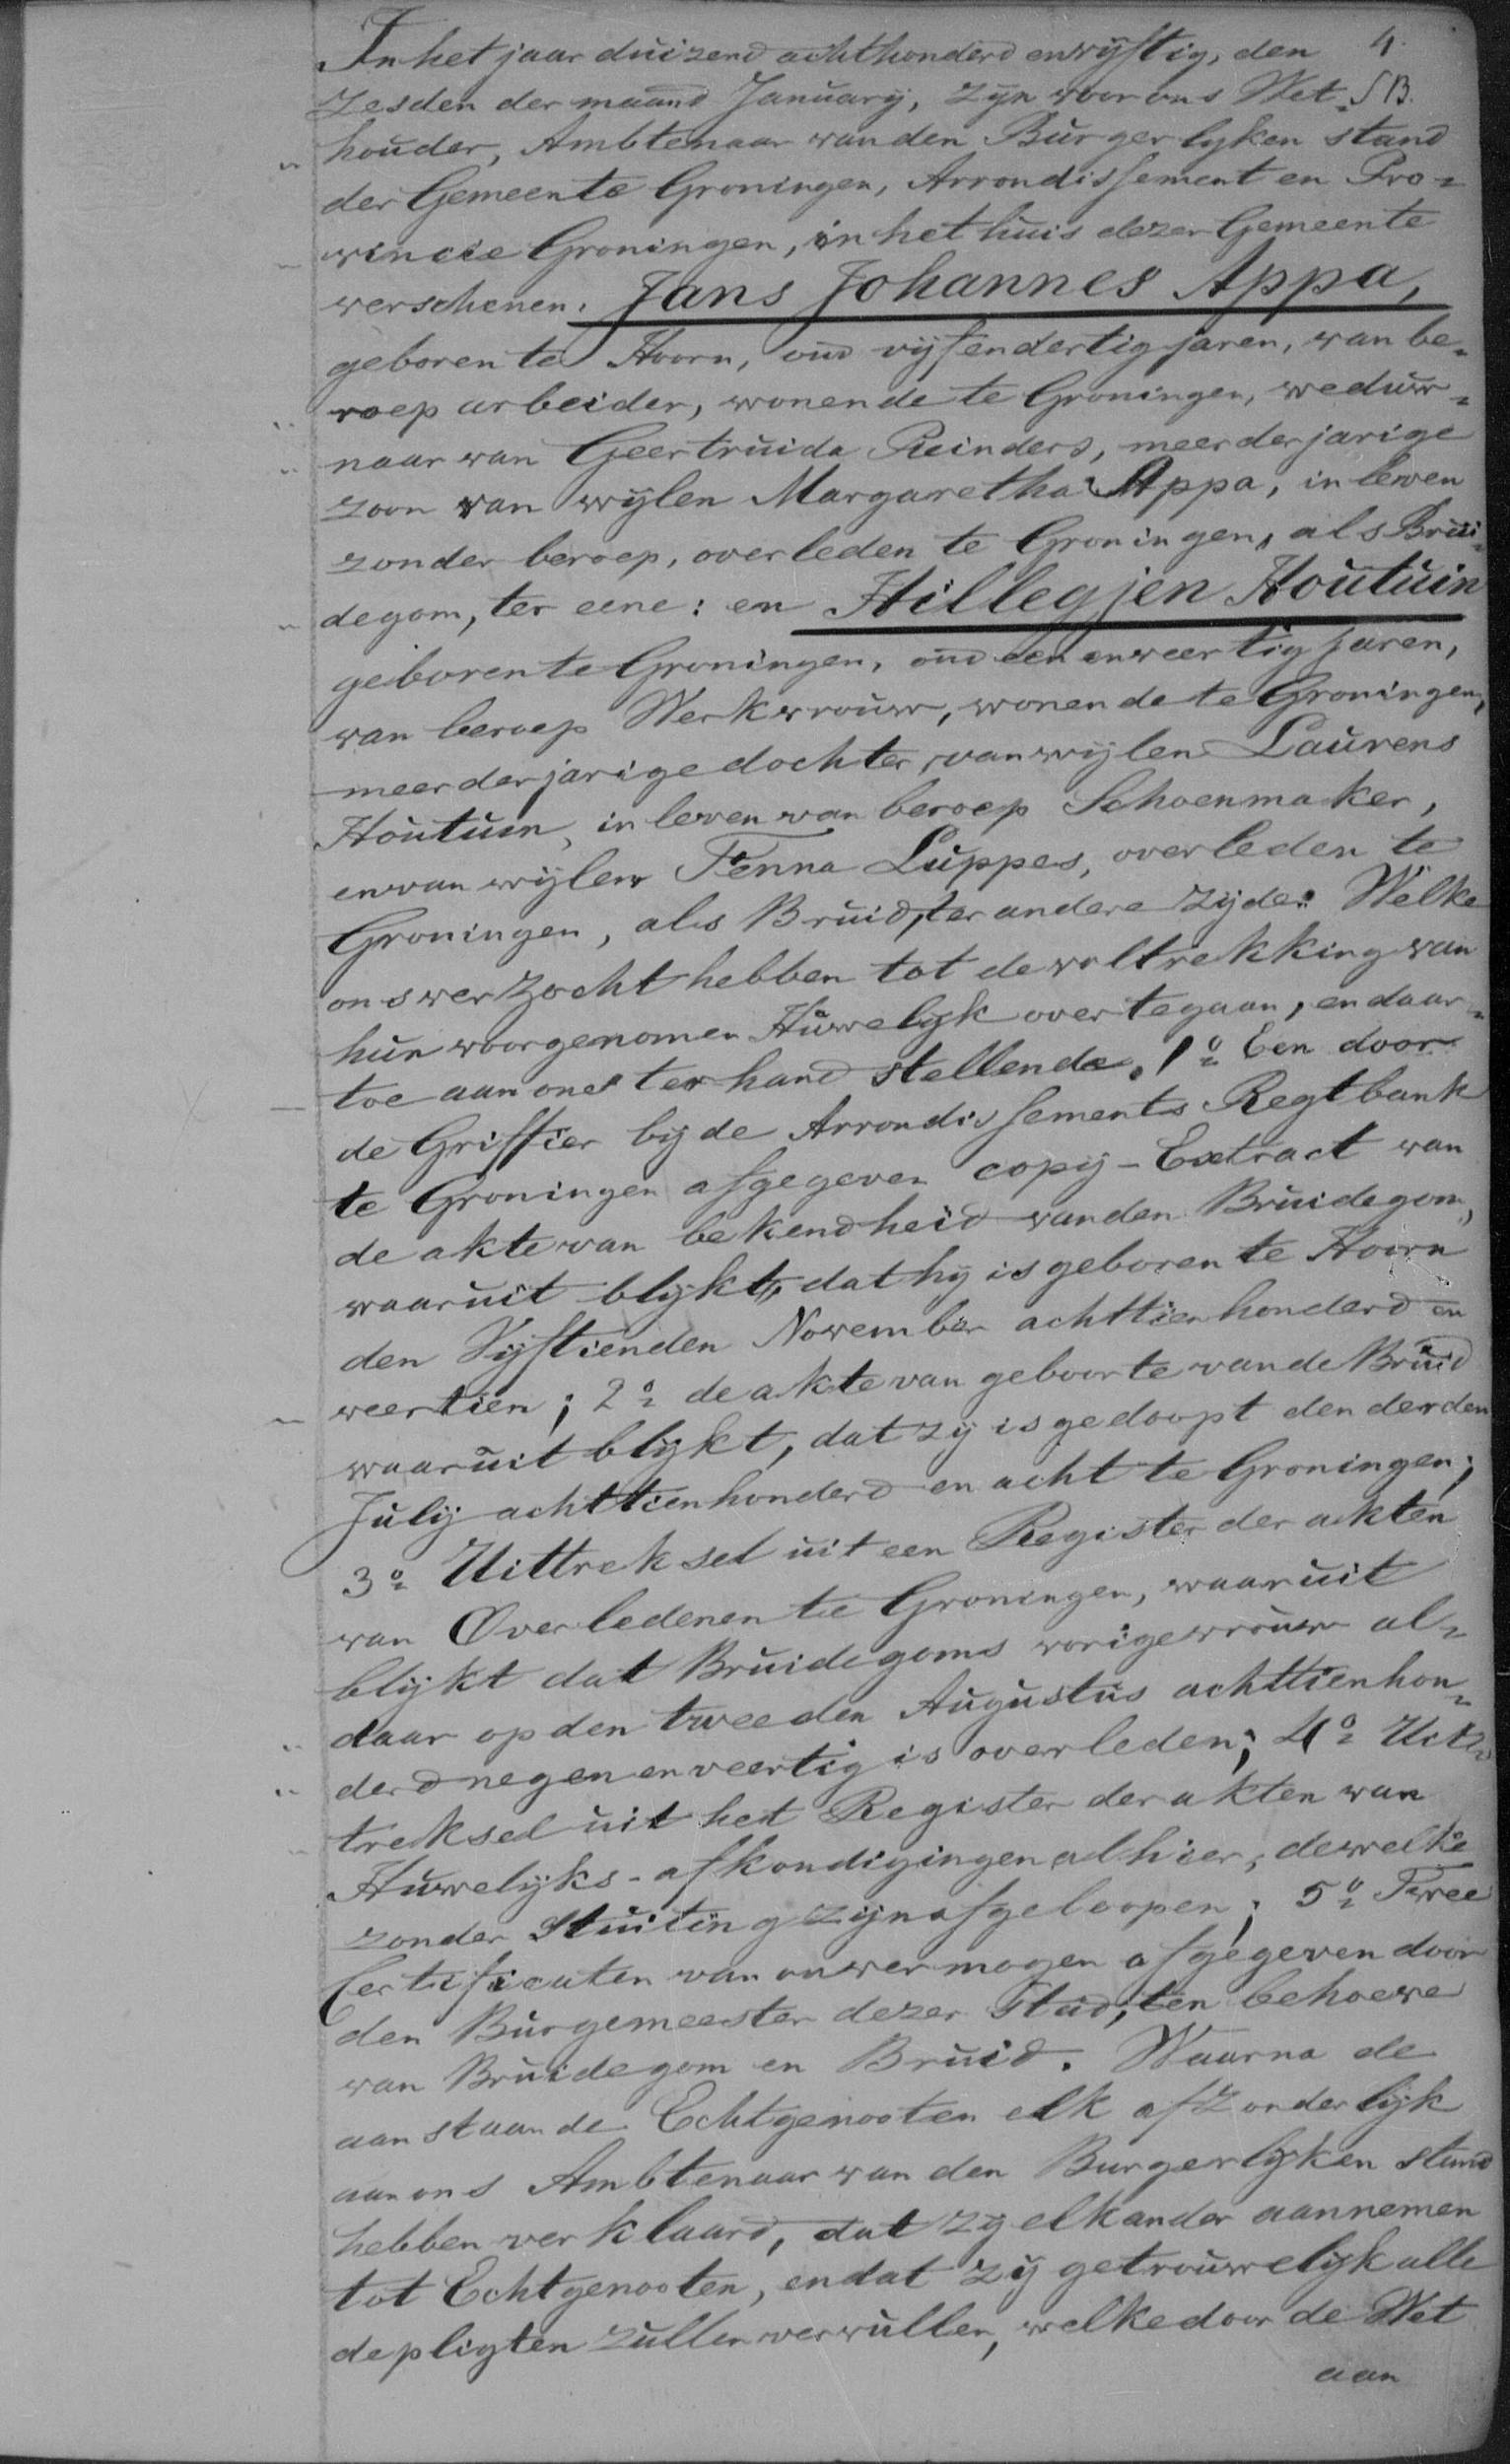 In het jaar duizend achthonderd envijftig, den 4.
zesden der maand January, zijn voor ons Wet= SB.
houder, Ambtenaar van den Burgerlyken stand
der Gemeente Groningen, Arrondissement en Pro=
vincie Groningen, in het huis dezer Gemeente
verschenen. Jans Johannes Appa,
geboren te Hoorn, oud vijfendertig jaren, van be=
roep arbeider, wonende te Groningen, weduw=
naar van Geertruida Reinders, meerderjarige
zoon van wijlen Margaretha Appa, in leven
zonder beroep, overleden te Groningen, als Brui=
degom, ter eene: en Hillegjen Houtuin
geboren te Groningen, oud een enveertig jaren,
van beroep Werkvrouw, wonende te Groningen,
meerderjarige dochter, van wijlen Laurens
Houtuin, in leven van beroep Schoenmaker,
en van wijlen Fenna Luppes, overleden te
Groningen, als Bruid, ter andere zijde: Welke
ons verzocht hebben tot de voltrekking van
hun voorgenomen Huwelijk overtegaan, en daar=
toe aan ons ter hand stellende. 1o Een door
de Griffier bij de Arrondissements Regtbank
te Groningen afgegeven copij-Extract van
de akte van bekendheid van den Bruidegom,
waaruit blijkt, dat hij is geboren te Hoorn
den Vijftienden November achttienhonderd en
veertien; 2o de akte van geboorte van de Bruid
waaruit blijkt, dat zij is gedoopt den derden
Julij achttienhonderd en acht te Groningen;
3o Uittreksel uit een Register der akten
van Overledenen te Groningen, waaruit
blijkt dat Bruidegoms vorige vrouw al=
daar op den tweeden Augustus achttienhon=
derd negen en veertig is overleden; 4o Uit=
treksel uit het Register der akten van
Huwelijks-afkondigingen alhier, dewelke
zonder Stuiting zijn afgeloopen; 5o Twee
Certificaten van onvermogen afgegeven door
den Burgemeester dezer Stad, ten behoeve
van Bruidegom en Bruid. Waarna de
aanstaande Echtgenooten elk afzonderlijk
aan ons Ambtenaar van den Burgerlijken stand
hebben verklaard, dat zij elkander aannemen
tot Echtgenooten, en dat zij getrouwelijk alle
de pligten zullen vervullen, welke door de Wet
aan